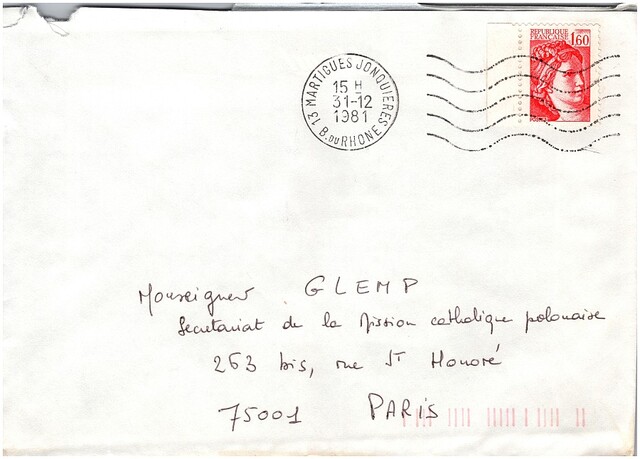 REPUBLIQUE
FRANCAISE 1,60
13 MARTIGUES JONQUIERES
15 H
31-12
1981
B. DU RHONE
Monseigneur GLEMP
Secretariat de la Mission catholique polonaise
263 bis, rue St Honoré
75001 PARIS